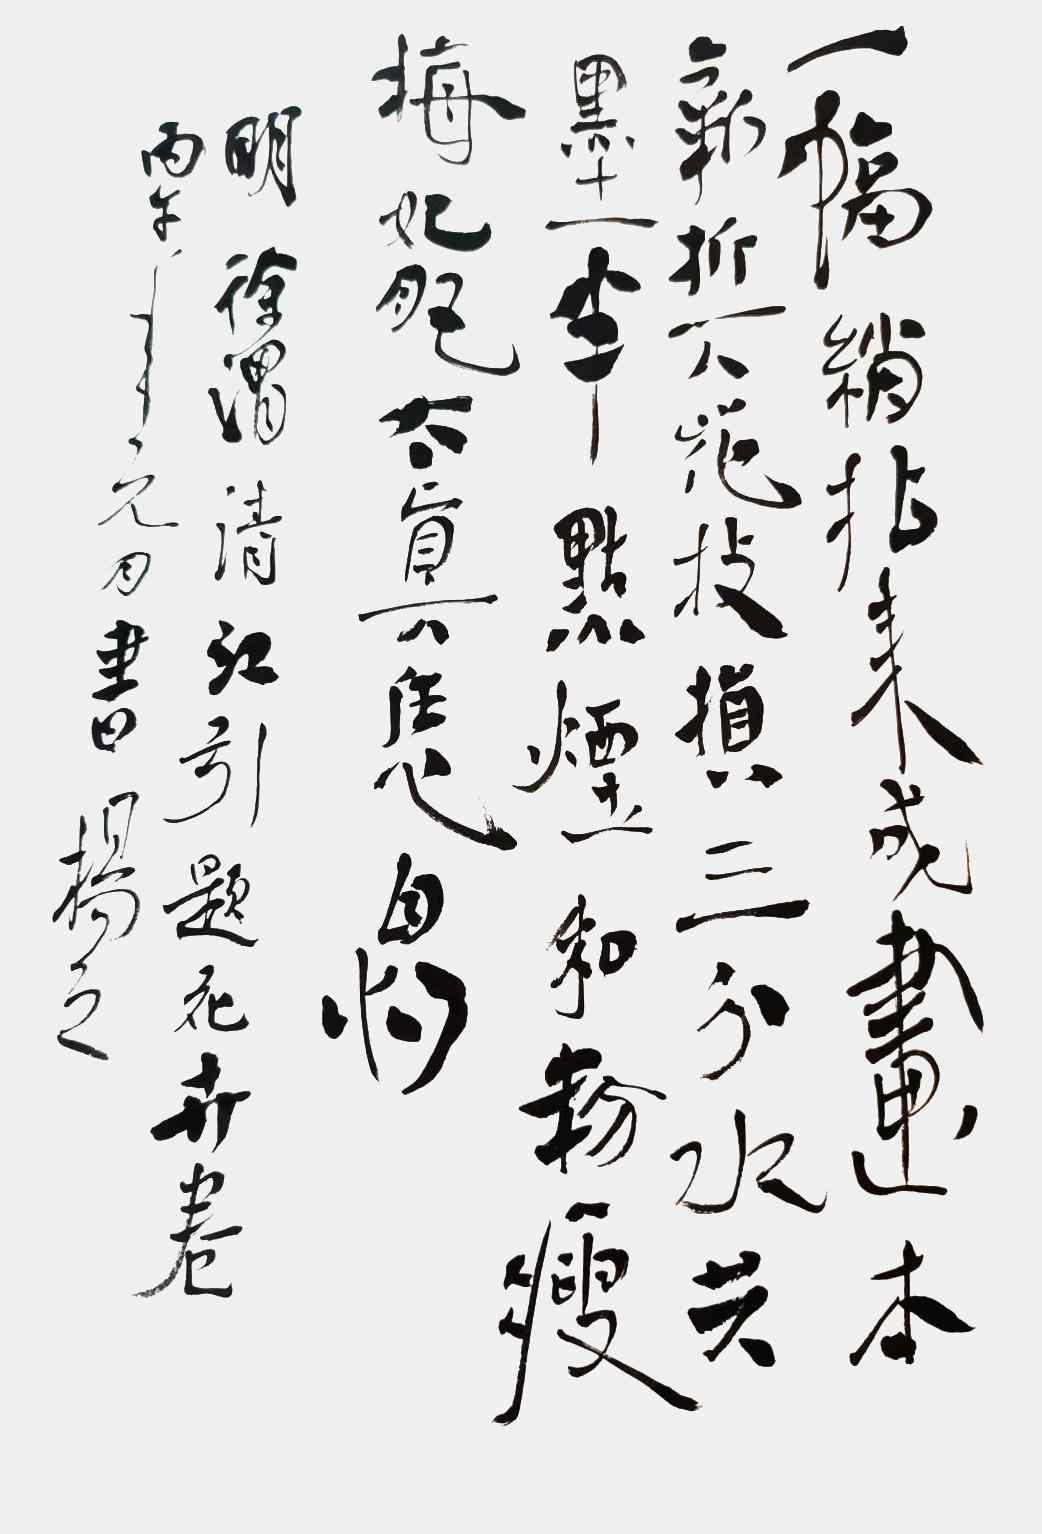 一幅綃拈來成畫本
新折下花枝損三分水共
墨半點煙和粉瘦
梅妃肥太真恁自
明 徐渭 清江引 題花卉卷
丙午年元月書 楊之